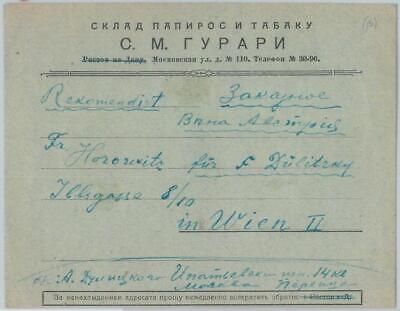 СКЛАД ПАПИРОС И ТАБАКУ
С. М. ГУРАРИ
Ростов на Дону, Московская ул. д. № 110. Телефон № 30-96.
Rekomendirt Заказное
Вина Австрия
Fr. Horowitz für F Dulitzky
8/10
in Wien II
от: А. Дулицкого Ипатьевский 14 кв
Москва
За ненахождением адресата прошу немедленно возвратить обратно: г. Ростов н/Д.